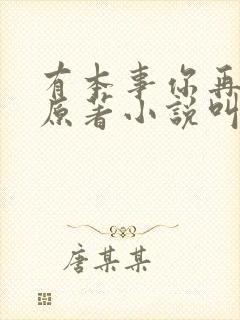 有本事你再
原著小說叫
唐某某